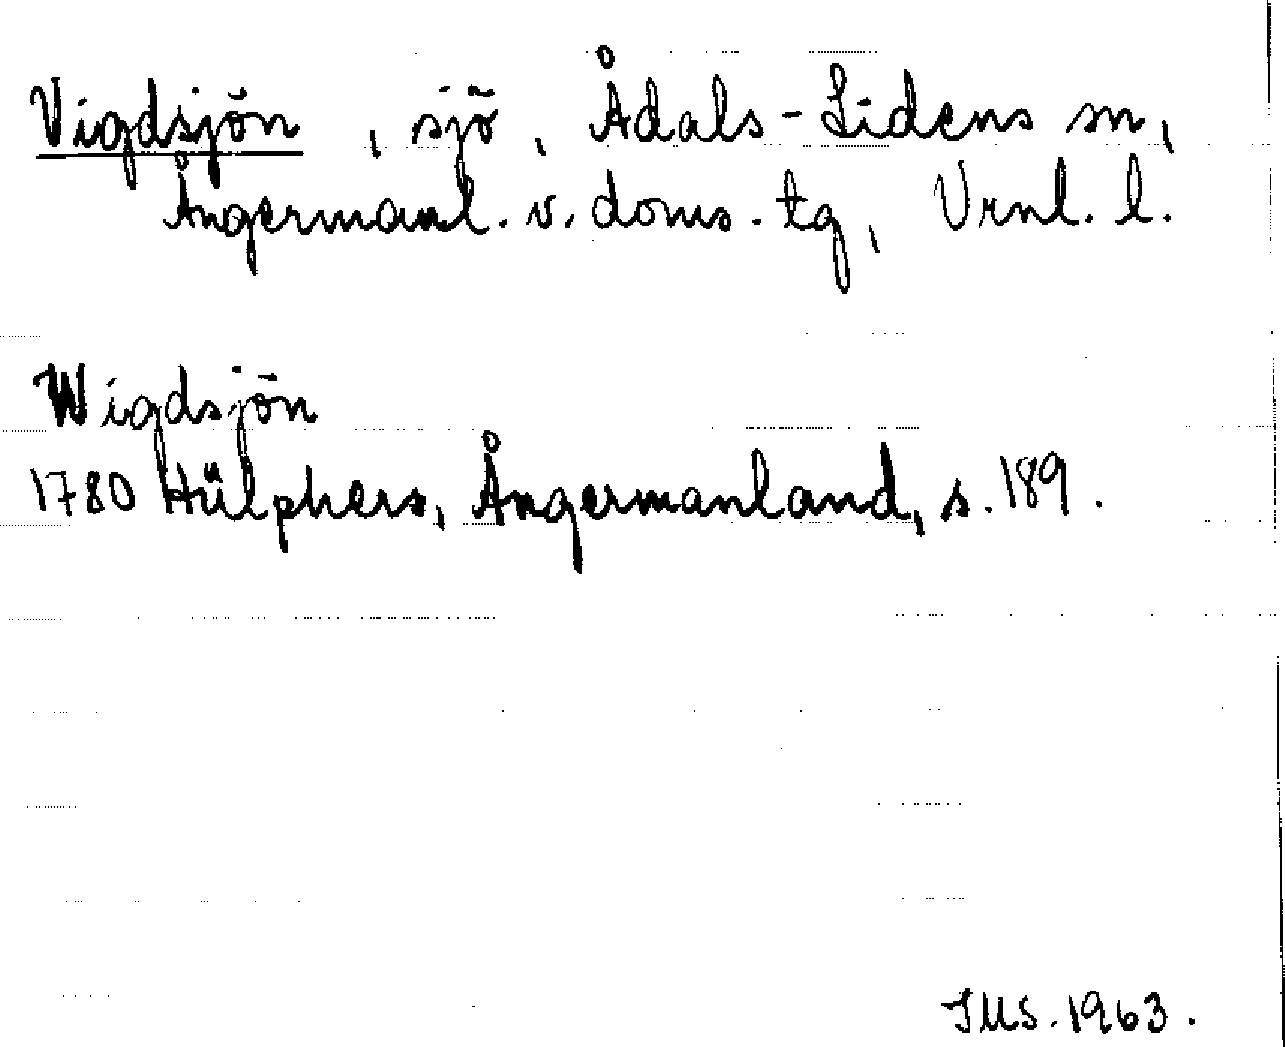 Vigdsjön, sjö, Ådals-Lidens sn,
Ångermanl. v. doms. tg, Vrnl. l.
Wigdsjön
1780 Hülphers, Ångermanland, s. 189.
IMS. 1963.